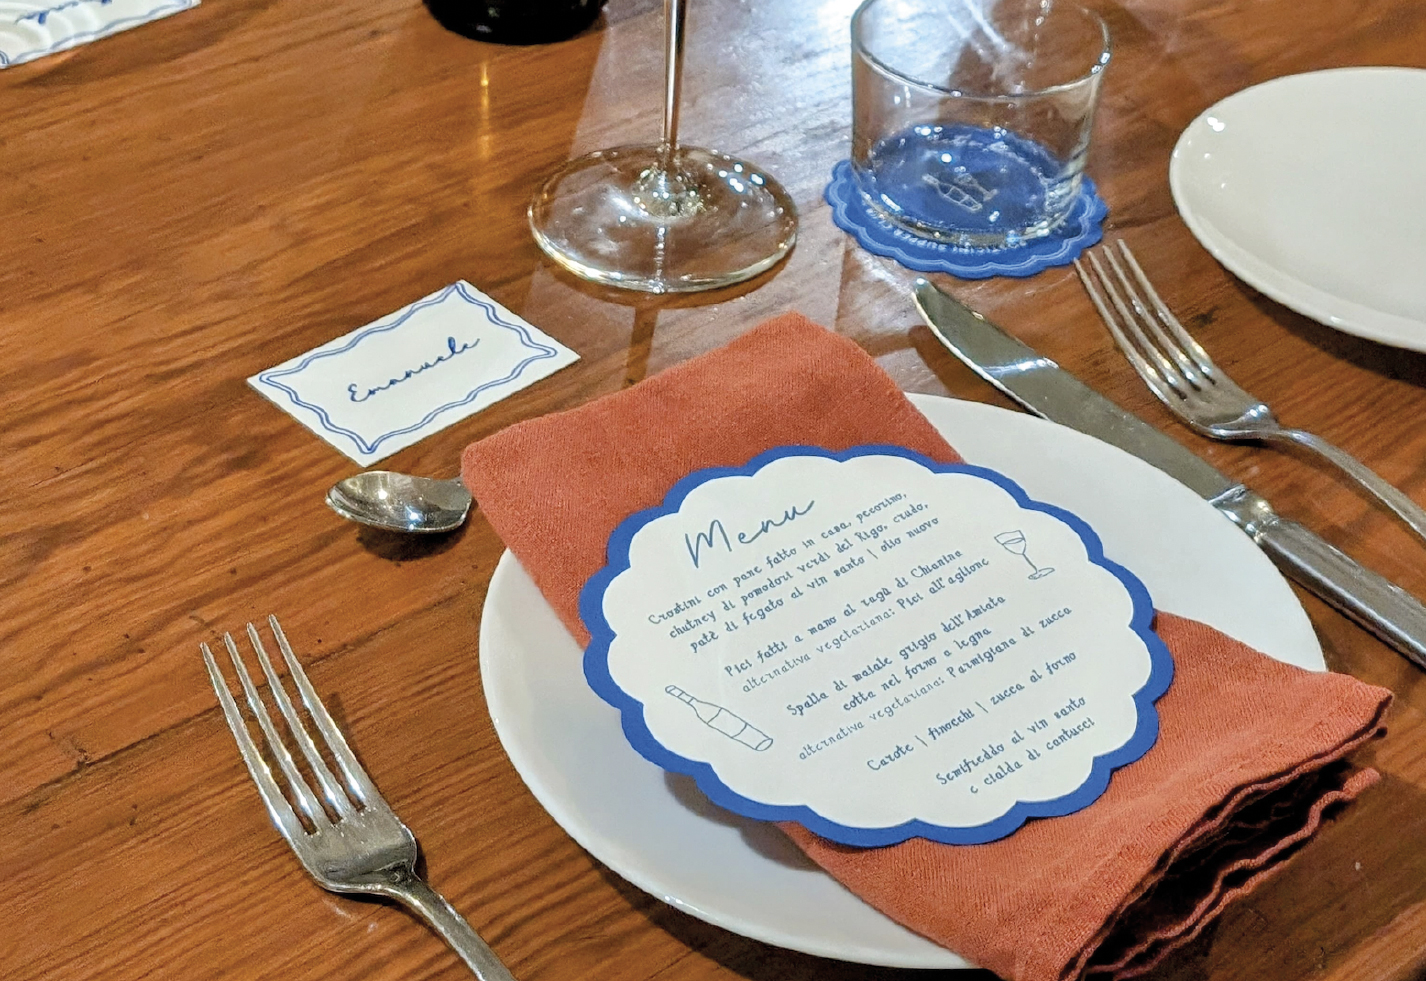 Emanuele
Menu
Crostini con pane fatto in casa, pecorino,
chutney di pomodori verdi del Rigo, crudo,
patè di fegato al vin santo | olio nuovo
Pici fatti a mano al ragù di Chianina
alternativa vegetariana: Pici all'aglione
Spalla di maiale grigio dell'Amiata
cotta nel forno a legna
alternativa vegetariana: Parmigiana di zucca
Carote | finocchi | zucca al forno
Semifreddo al vin santo
e cialda di cantucci